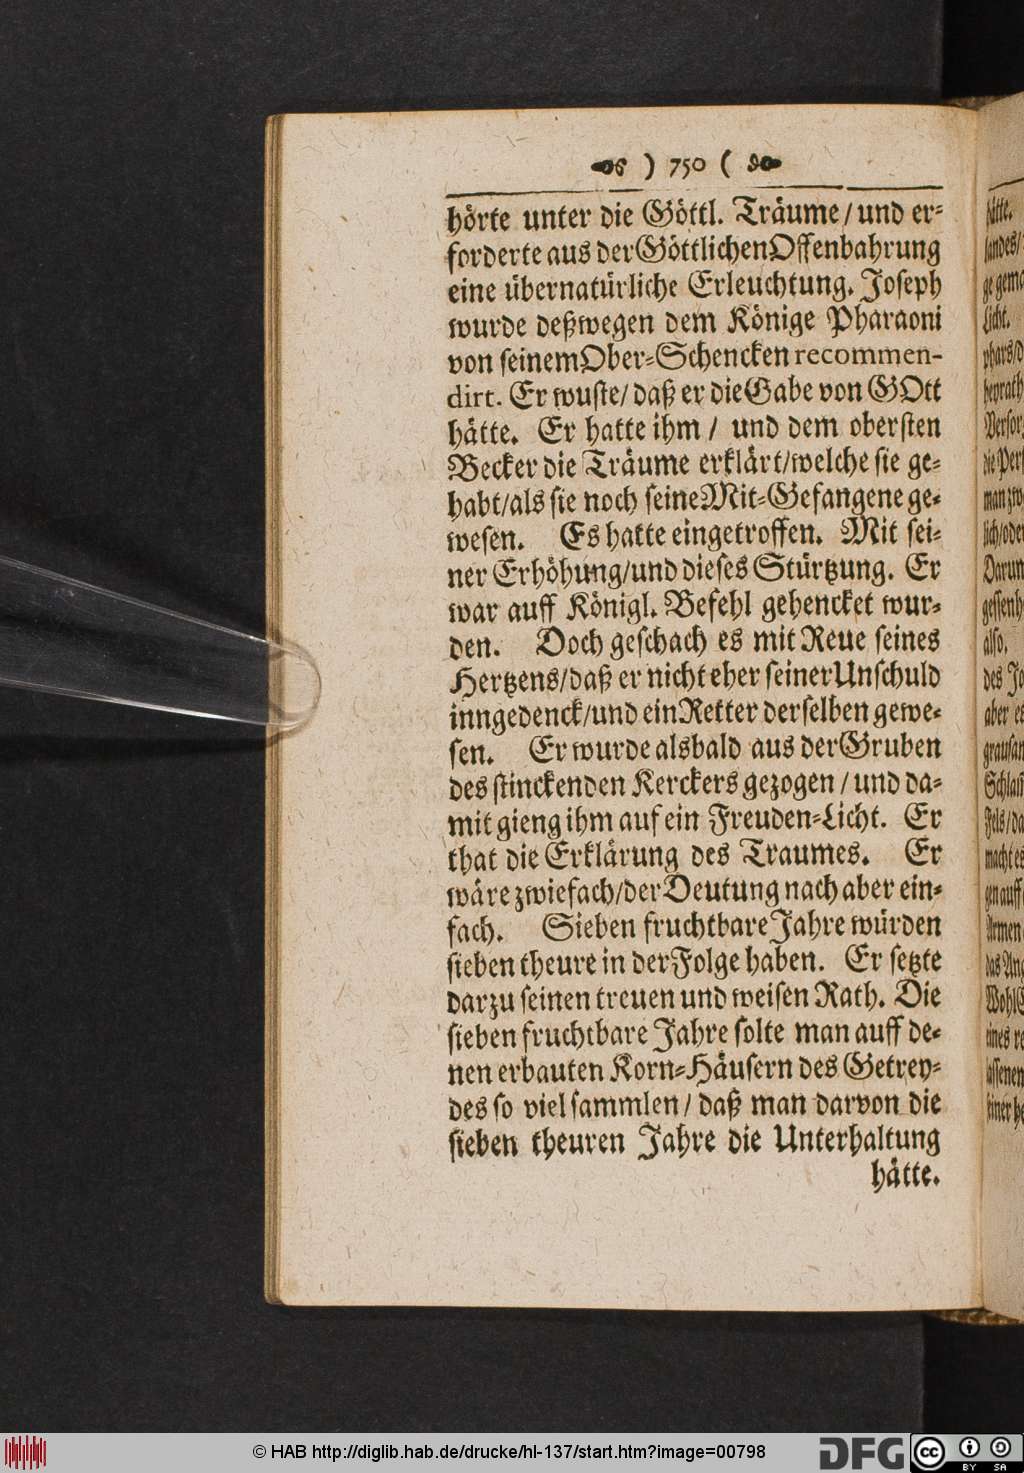 ) 750 (
hörte unter die Göttl. Träume / und er-
forderte aus der Göttlichen Offenbahrung
eine übernatürliche Erleuchtung. Joseph
wurde deßwegen dem Könige Pharaoni
von seinem Ober-Schencken recommen-
dirt. Er wuste / daß er die Gabe von GOtt
hätte. Er hatte ihm / und dem obersten
Becker die Träume erklärt / welche sie ge-
habt / als sie noch seine Mit-Gefangene ge-
wesen. Es hatte eingetroffen. Mit sei-
ner Erhöhung / und dieses Stürtzung. Er
war auff Königl. Befehl gehencket wur-
den. Doch geschach es mit Reue seines
Hertzens / daß er nicht eher seiner Unschuld
inngedenck / und ein Retter derselben gewe-
sen. Er wurde alsbald aus der Gruben
des stinckenden Kerckers gezogen / und da-
mit gieng ihm auf ein Freuden-Licht. Er
that die Erklärung des Traumes. Er
wäre zwiefach / der Deutung nach aber ein-
fach. Sieben fruchtbare Jahre würden
sieben theure in der Folge haben. Er setzte
darzu seinen treuen und weisen Rath. Die
sieben fruchtbare Jahre solte man auff de-
nen erbauten Korn-Häusern des Getrey-
des so viel sammlen / daß man darvon die
sieben theuren Jahre die Unterhaltung
hätte.
© HAB http://diglib.hab.de/drucke/hl-137/start.htm?image=00798
DFG
cc
BY SA